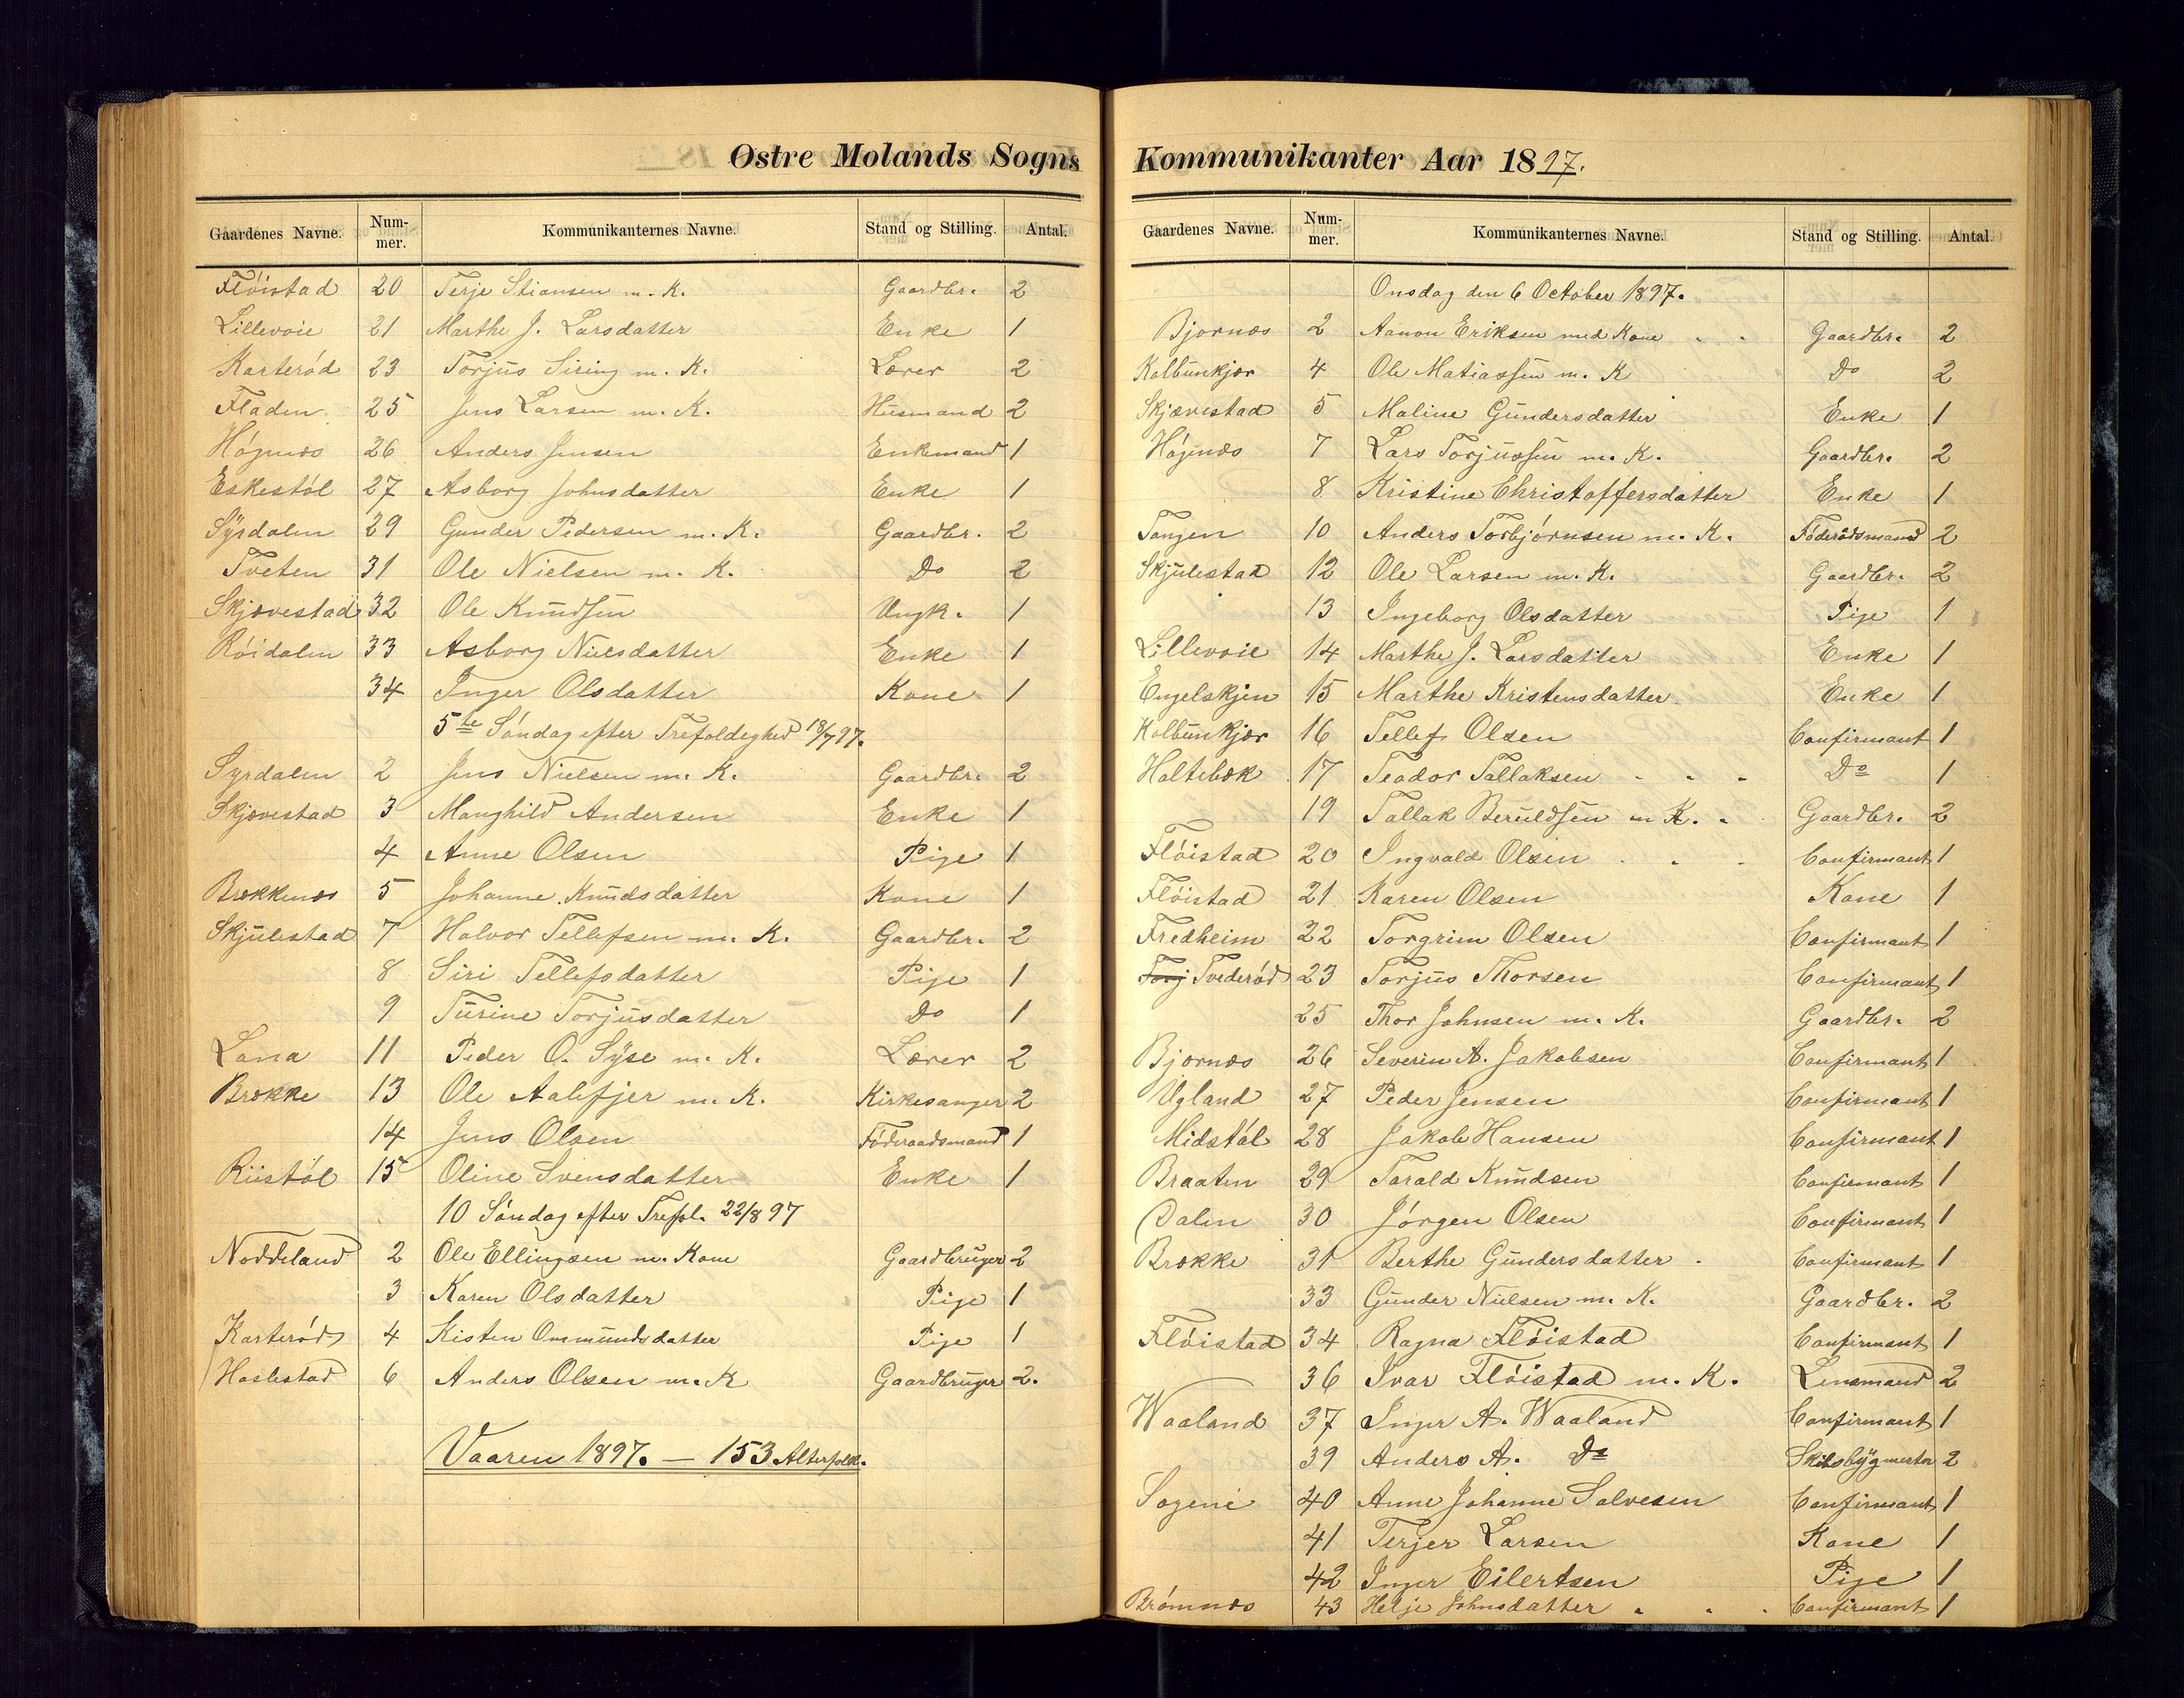 Østre Molands Sogns
Gaardenes Navne. Nummer. Kommunikanternes Navne. Stand og Stilling. Antal.
Flöistad 20 Terje Stiansen m. K. Gaardbr. 2
Lillevoie 21 Marthe J. Larsdatter Enke 1
Karteröd 23 Torjus Siring m. K. Lærer 2
Fladen 25 Jens Larsen m. K. Husmand 2
Högnæs 26 Anders Jensen Enkemand 1
Eskestöl 27 Asborg Johnsdatter Enke 1
Syrdalen 29 Gunder Pedersen m. K. Gaardbr. 2
Tveten 31 Ole Nielsen m. K. Do 2
Skjævestad 32 Ole Knudsen Ungk. 1
Röidalen 33 Asborg Nielsdatter Enke 1
34 Inger Olsdatter Kone 1
5te Söndag efter Trefoldeghed 18/7 97.
Syrdalen 2 Jens Nielsen m. K. Gaardbr. 2
Skjævestad 3 Manghild Andersen Enke 1
4 Anne Olsen Pige 1
Brækkenæs 5 Johanne Knudsdatter Kone 1
Skjulestad 7 Halvor Tellefsen m. K. Gaardbr. 2
8 Siri Tellefsdatter Pige 1
9 Turine Torjusdatter Do 1
Lana 11 Peder O. Syse m. K. Lærer 2
Brække 13 Ole Aalefjer m. K. Kirkesanger 2
14 Jens Olsen Föderaadsmand 1
Riistöl 15 Oline Svensdatter Enke 1
10 Söndag efter Trefol. 22/8 97
Noddeland 2 Ole Ellingsen m. Kone Gaardbruger 2
3 Karen Olsdatter Pige 1
Karteröd 4 Kisten Ommundsdatter Pige 1
Haslestad 6 Anders Olsen m. K Gaardbruger 2.
Vaaren 1897. — 153 Alterfolk.
Kommunikanter Aar 1897.
Gaardenes Navne. Nummer. Kommunikanternes Navne. Stand og Stilling. Antal.
Onsdag den 6 October 1897.
Bjornæs 2 Aanon Eriksen med Kone Gaardbr. 2
Kolbunkjær 4 Ole Matiassen m. K Do 2
Skjævestad 5 Maline Gundersdatter Enke 1
Högnæs 7 Lars Torjussen m. K. Gaardbr. 2
8 Kristine Christoffersdatter Enke 1
Tangen 10 Anders Torbjörnsen m. K. Föderådsmand 2
Skjulestad 12 Ole Larsen m. K. Gaardbr. 2
13 Ingeborg Olsdatter Pige 1
Lillevoie 14 Marthe J. Larsdatter Enke 1
Engelskjen 15 Marthe Kristensdatter Enke 1
Kolbunkjær 16 Tellef Olsen Confirmant 1
Holtebæk 17 Teodor Tallaksen Do 1
19 Tallak Beruldsen m K. Gaardbr. 2
Flöistad 20 Ingvald Olsen Confirmant 1
Flöistad 21 Karen Olsen Kone 1
Fredheim 22 Torgrim Olsen Confirmant 1
Torj Tvederöd 23 Torjus Thorsen Confirmant 1
25 Thor Johnsen m. K. Gaardbr. 2
Bjornæs 26 Severin A. Jakobsen Confirmant 1
Ugland 27 Peder Jensen Confirmant 1
Midstöl 28 Jakob Hansen Confirmant 1
Braaten 29 Tarald Knudsen Confirmant 1
Dalen 30 Jörgen Olsen Confirmant 1
Brække 31 Berthe Gundersdatter Confirmant 1
33 Gunder Nielsen m. K. Gaardbr. 2
Flöistad 34 Ragna Flöistad Confirmant 1
36 Ivar Flöistad m. K. Lensmand 2
Waaland 37 Inger A. Waaland Confirmant 1
39 Anders A. Do Skibsbygmester 2
Sogene 40 Anne Johanne Salvesen Confirmant 1
41 Terjer Larsen Kone 1
42 Inger Eilertsen Pige 1
Brömnæs 43 Helje Johnsdatter Confirmant 1